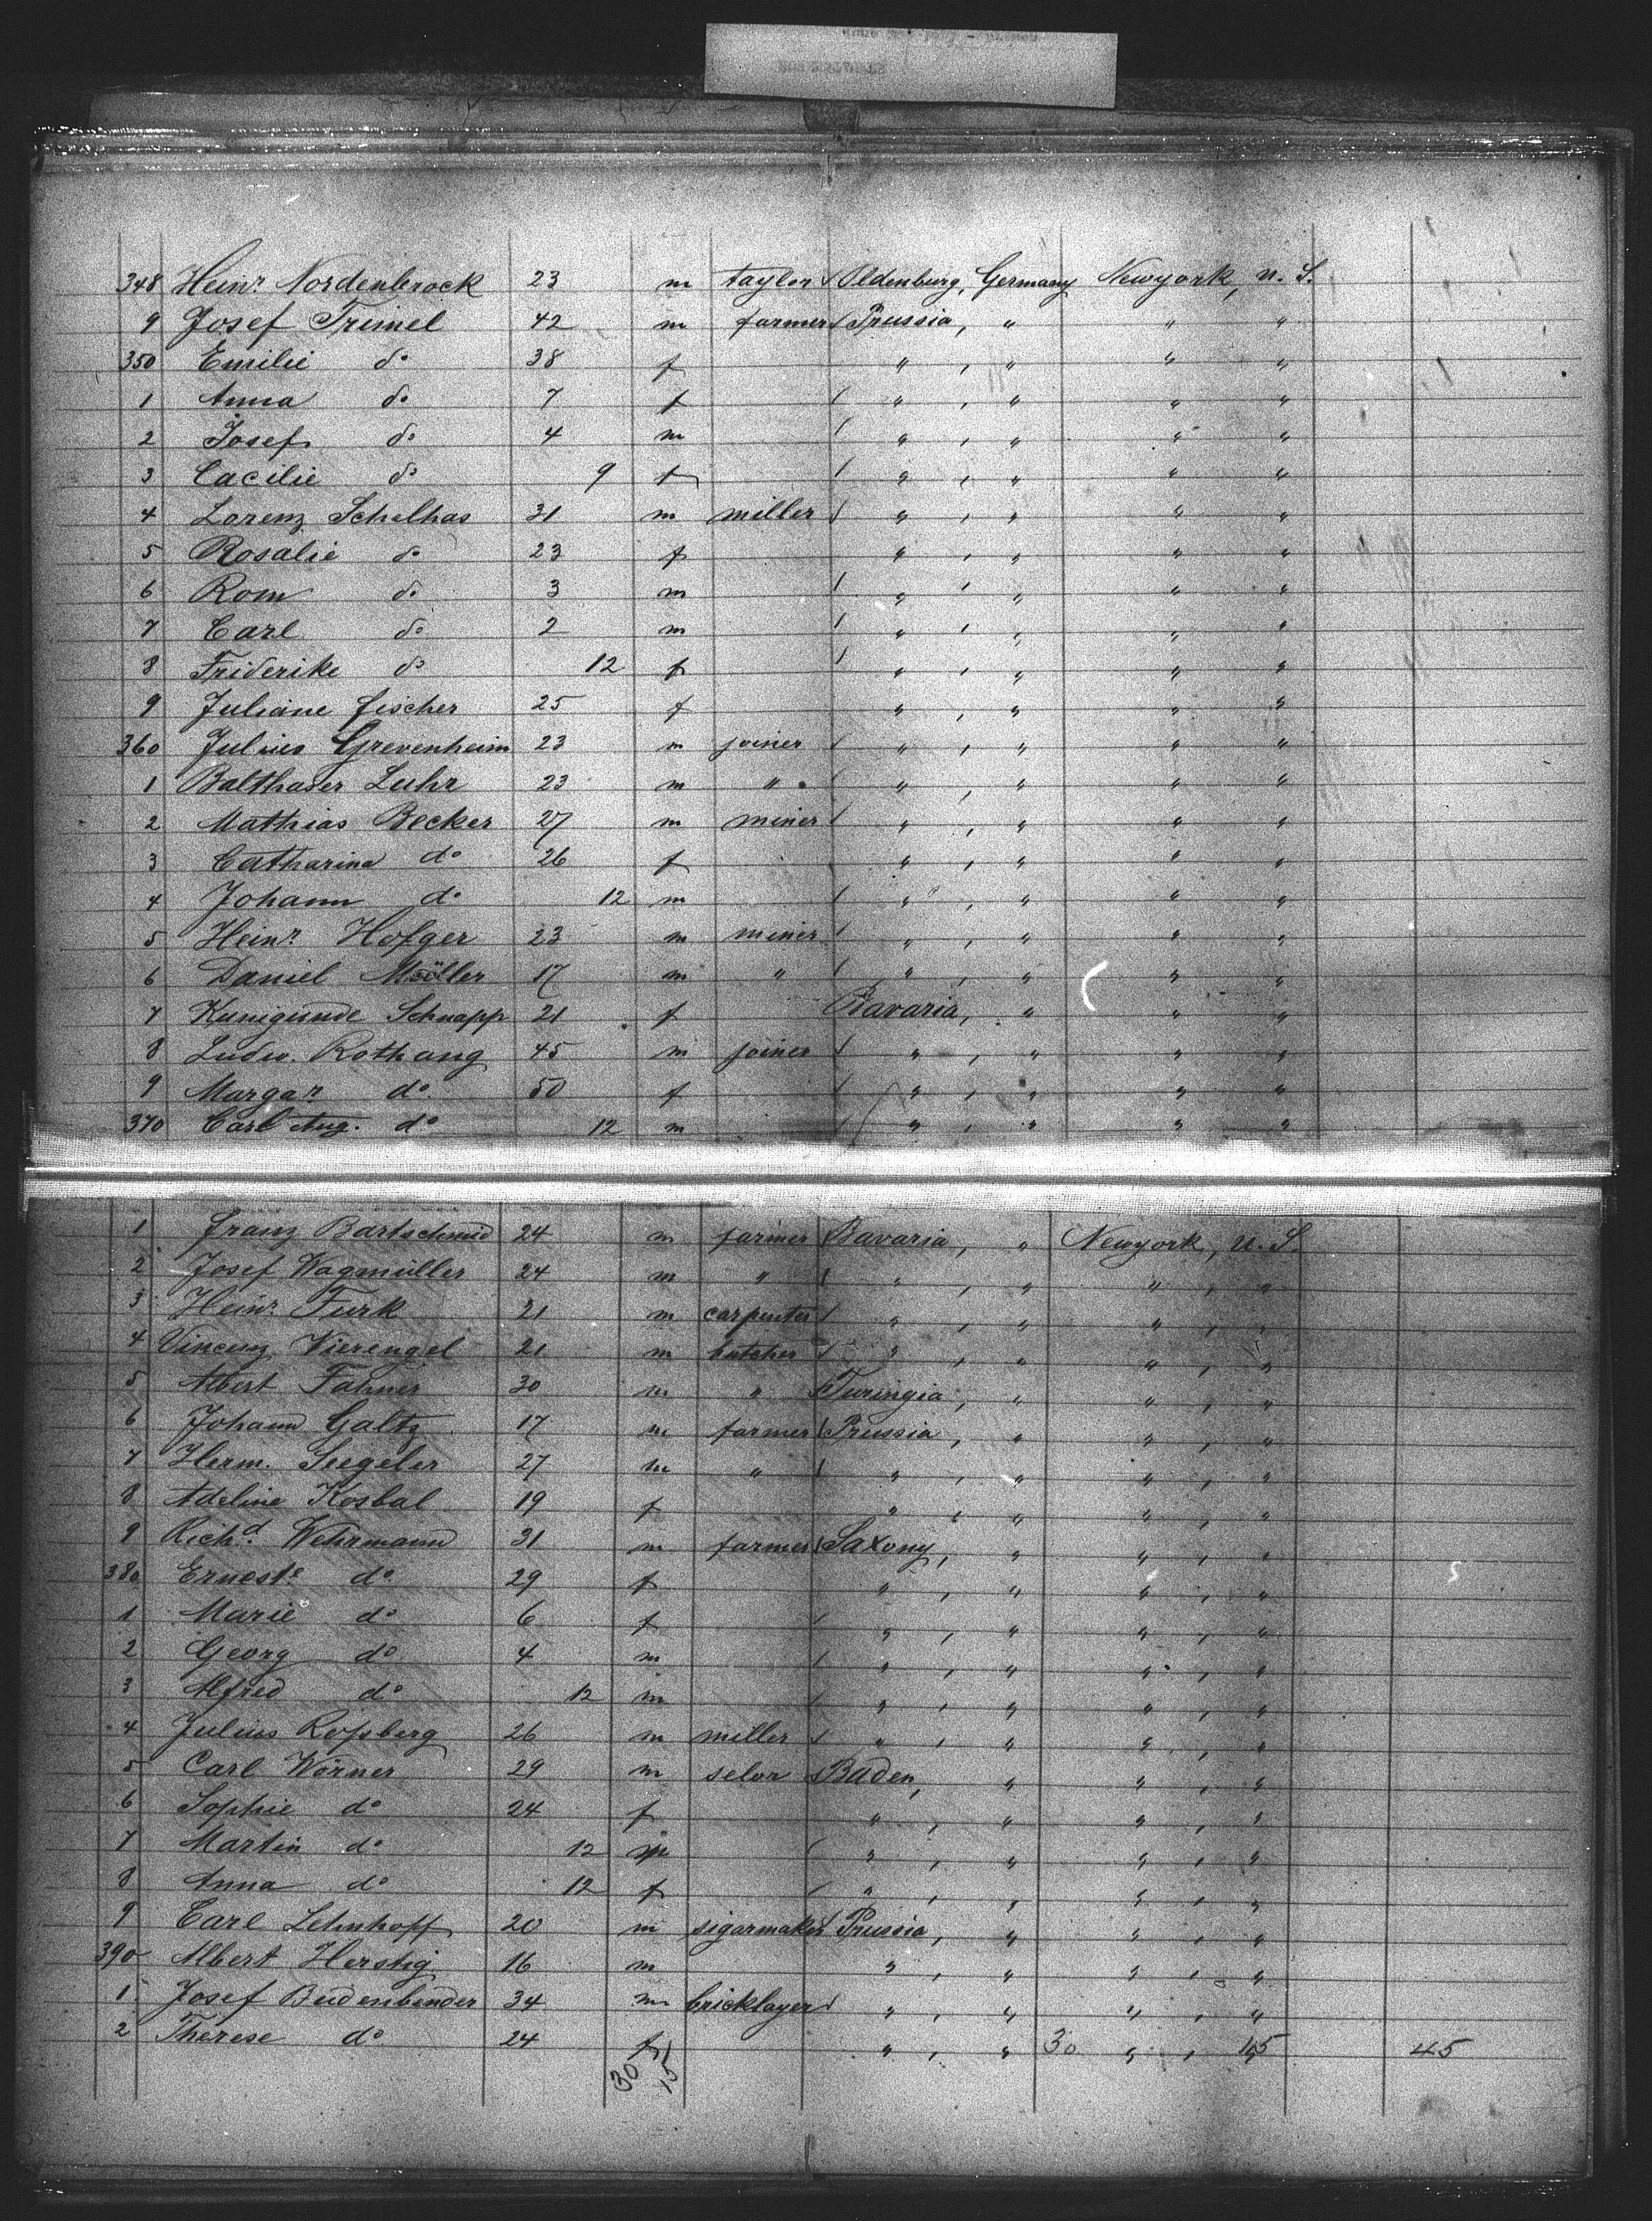 348 Heinr. Nordenbrock 23 m taylor Oldenburg, Germany Newyork, U. S.
9 Josef Trimel 42 m farmer Prussia, " " "
350 Emilie do 38 f " , " " "
1 Anna do 7 f " , " " "
2 Josef do 4 m " , " " "
3 Cacilie do 9 f " , " " "
4 Lorenz Schelhas 31 m miller " , " " "
5 Rosalie do 23 f " , " " "
6 Rom do 3 m " , " " "
7 Carl do 2 m " , " " "
8 Friderike do 12 f " , " " "
9 Juliane fischer 25 f " , " " "
360 Julius Grevenheim 23 m joiner " , " " "
1 Balthaser Luhr 23 m " " , " " "
2 Mathias Becker 27 m miner " , " " "
3 Catharina do 26 f " , " " "
4 Johann do 12 m " , " " "
5 Heinr. Hofger 23 m miner " , " " "
6 Daniel Möller 17 m " " , " " "
7 Kunigunde Schnapp 21 f Bavaria, " " "
8 Ludw. Rothang 45 m joiner " , " " "
9 Margar. do 50 f " , " " "
370 Carl Aug. do 12 m " , " " "
1 Franz Bartschmid 24 m farmer Bavaria, " Newyork, U. S.
2 Josef Wagmüller 24 m " " , " " , "
3 Heinr. Turk 21 m carpenter " , " " , "
4 Vincenz Vierengel 21 m butcher " , " " , "
5 Albert Fahner 30 m " Turingia, " " , "
6 Johann Galtz 17 m farmer Prussia, " " , "
7 Herm. Seegeler 27 m " " , " " , "
8 Adeline Kosbal 19 f " , " " , "
9 Richd. Wehrmann 31 m farmer Saxony, " " , "
380 Erneste do 29 f " , " " , "
1 Marie do 6 f " , " " , "
2 Georg do 4 m " , " " , "
3 Alfred do 12 m " , " " , "
4 Julius Rossberg 26 m miller " , " " , "
5 Carl Wörner 29 m selor Baden, " " , "
6 Sophie do 24 f " , " " , "
7 Martin do 12 m " , " " , "
8 Anna do 12 f " , " " , "
9 Carl Lehnhoff 20 m sigarmaker Prussia, " " , "
390 Albert Herstig 16 m " , " " , "
1 Josef Budenbender 34 m bricklayer " , " " , "
2 Therese do 24 f " , " 30 " , " 15 45
30 15